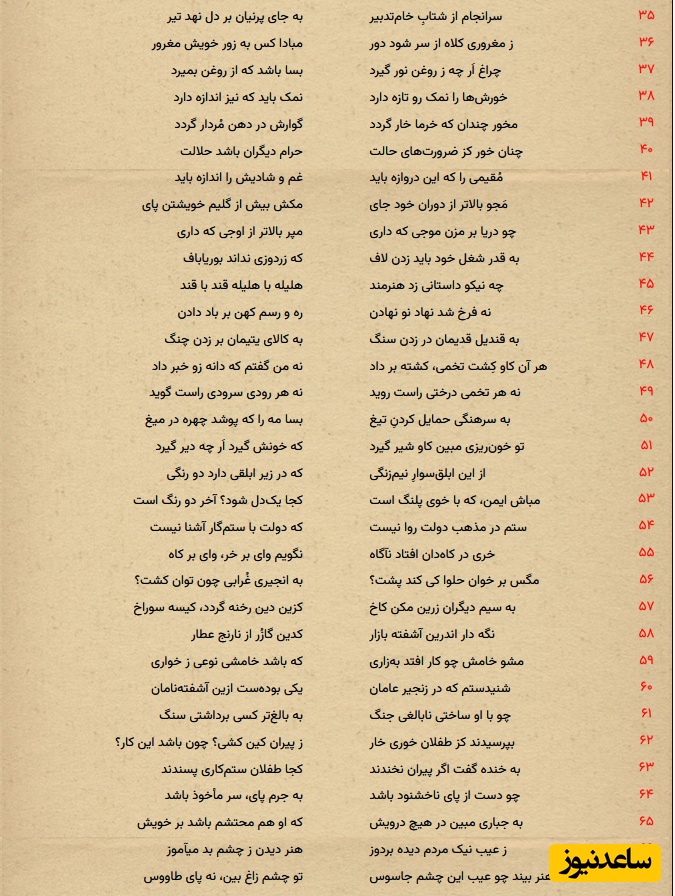 ۳۵ سرانجام از شتابِ خام‌تدبیر به جای پرنیان بر دل نهد تیر
۳۶ ز مغروری کلاه از سر شود دور مبادا کس به زور خویش مغرور
۳۷ چراغ اَر چه ز روغن نور گیرد بسا باشد که از روغن بمیرد
۳۸ خورش‌ها را نمک رو تازه دارد نمک باید که نیز اندازه دارد
۳۹ مخور چندان که خرما خار گردد گوارش در دهن مُردار گردد
۴۰ چنان خور کز ضرورت‌های حالت حرام دیگران باشد حلالت
۴۱ مُقیمی را که این دروازه باید غم و شادیش را اندازه باید
۴۲ مَجو بالاتر از دوران خود جای مکش بیش از گلیم خویشتن پای
۴۳ چو دریا بر مزن موجی که داری مپر بالاتر از اوجی که داری
۴۴ به قدر شغل خود باید زدن لاف که زردوزی نداند بوریاباف
۴۵ چه نیکو داستانی زد هنرمند هلیله با هلیله قند با قند
۴۶ نه فرخ شد نهاد نو نهادن ره و رسم کهن بر باد دادن
۴۷ به قندیل قدیمان در زدن سنگ به کالای یتیمان بر زدن چنگ
۴۸ هر آن کاو کِشت تخمی، کشته بر داد نه من گفتم که دانه زو خبر داد
۴۹ نه هر تخمی درختی راست روید نه هر رودی سرودی راست گوید
۵۰ به سرهنگی حمایل کردنِ تیغ بسا مه را که پوشد چهره در میغ
۵۱ تو خون‌ریزی مبین کاو شیر گیرد که خونش گیرد اَر چه دیر گیرد
۵۲ از این ابلق‌سوارِ نیم‌زنگی که در زیر ابلقی دارد دو رنگی
۵۳ مباش ایمن، که با خوی پلنگ است کجا یک‌دل شود؟ آخر دو رنگ است
۵۴ ستم در مذهب دولت روا نیست که دولت با ستم‌گار آشنا نیست
۵۵ خری در کاه‌دان افتاد نآگاه نگویم وای بر خر، وای بر کاه
۵۶ مگس بر خوان حلوا کی کند پشت؟ به انجیری غُرابی چون توان کشت؟
۵۷ به سیم دیگران زرین مکن کاخ کزین دین رخنه گردد، کیسه سوراخ
۵۸ نگه دار اندرین آشفته بازار کدین گازُر از نارنج عطار
۵۹ مشو خامش چو کار افتد به‌زاری که باشد خامشی نوعی ز خواری
۶۰ شنیدستم که در زنجیر عامان یکی بوده‌ست ازین آشفته‌نامان
۶۱ چو با او ساختی نابالغی جنگ به بالغ‌تر کسی برداشتی سنگ
۶۲ بپرسیدند کز طفلان خوری خار ز پیران کین کشی؟ چون باشد این کار؟
۶۳ به خنده گفت اگر پیران نخندند کجا طفلان ستم‌کاری پسندند
۶۴ چو دست از پای ناخشنود باشد به جرم پای، سر مأخوذ باشد
۶۵ به جباری مبین در هیچ درویش که او هم محتشم باشد بر خویش
ز عیب نیک مردم دیده بردوز هنر دیدن ز چشم بد میآموز
هنر بیند چو عیب این چشم جاسوس تو چشم زاغ بین، نه پای طاووس
ساعدنیوز